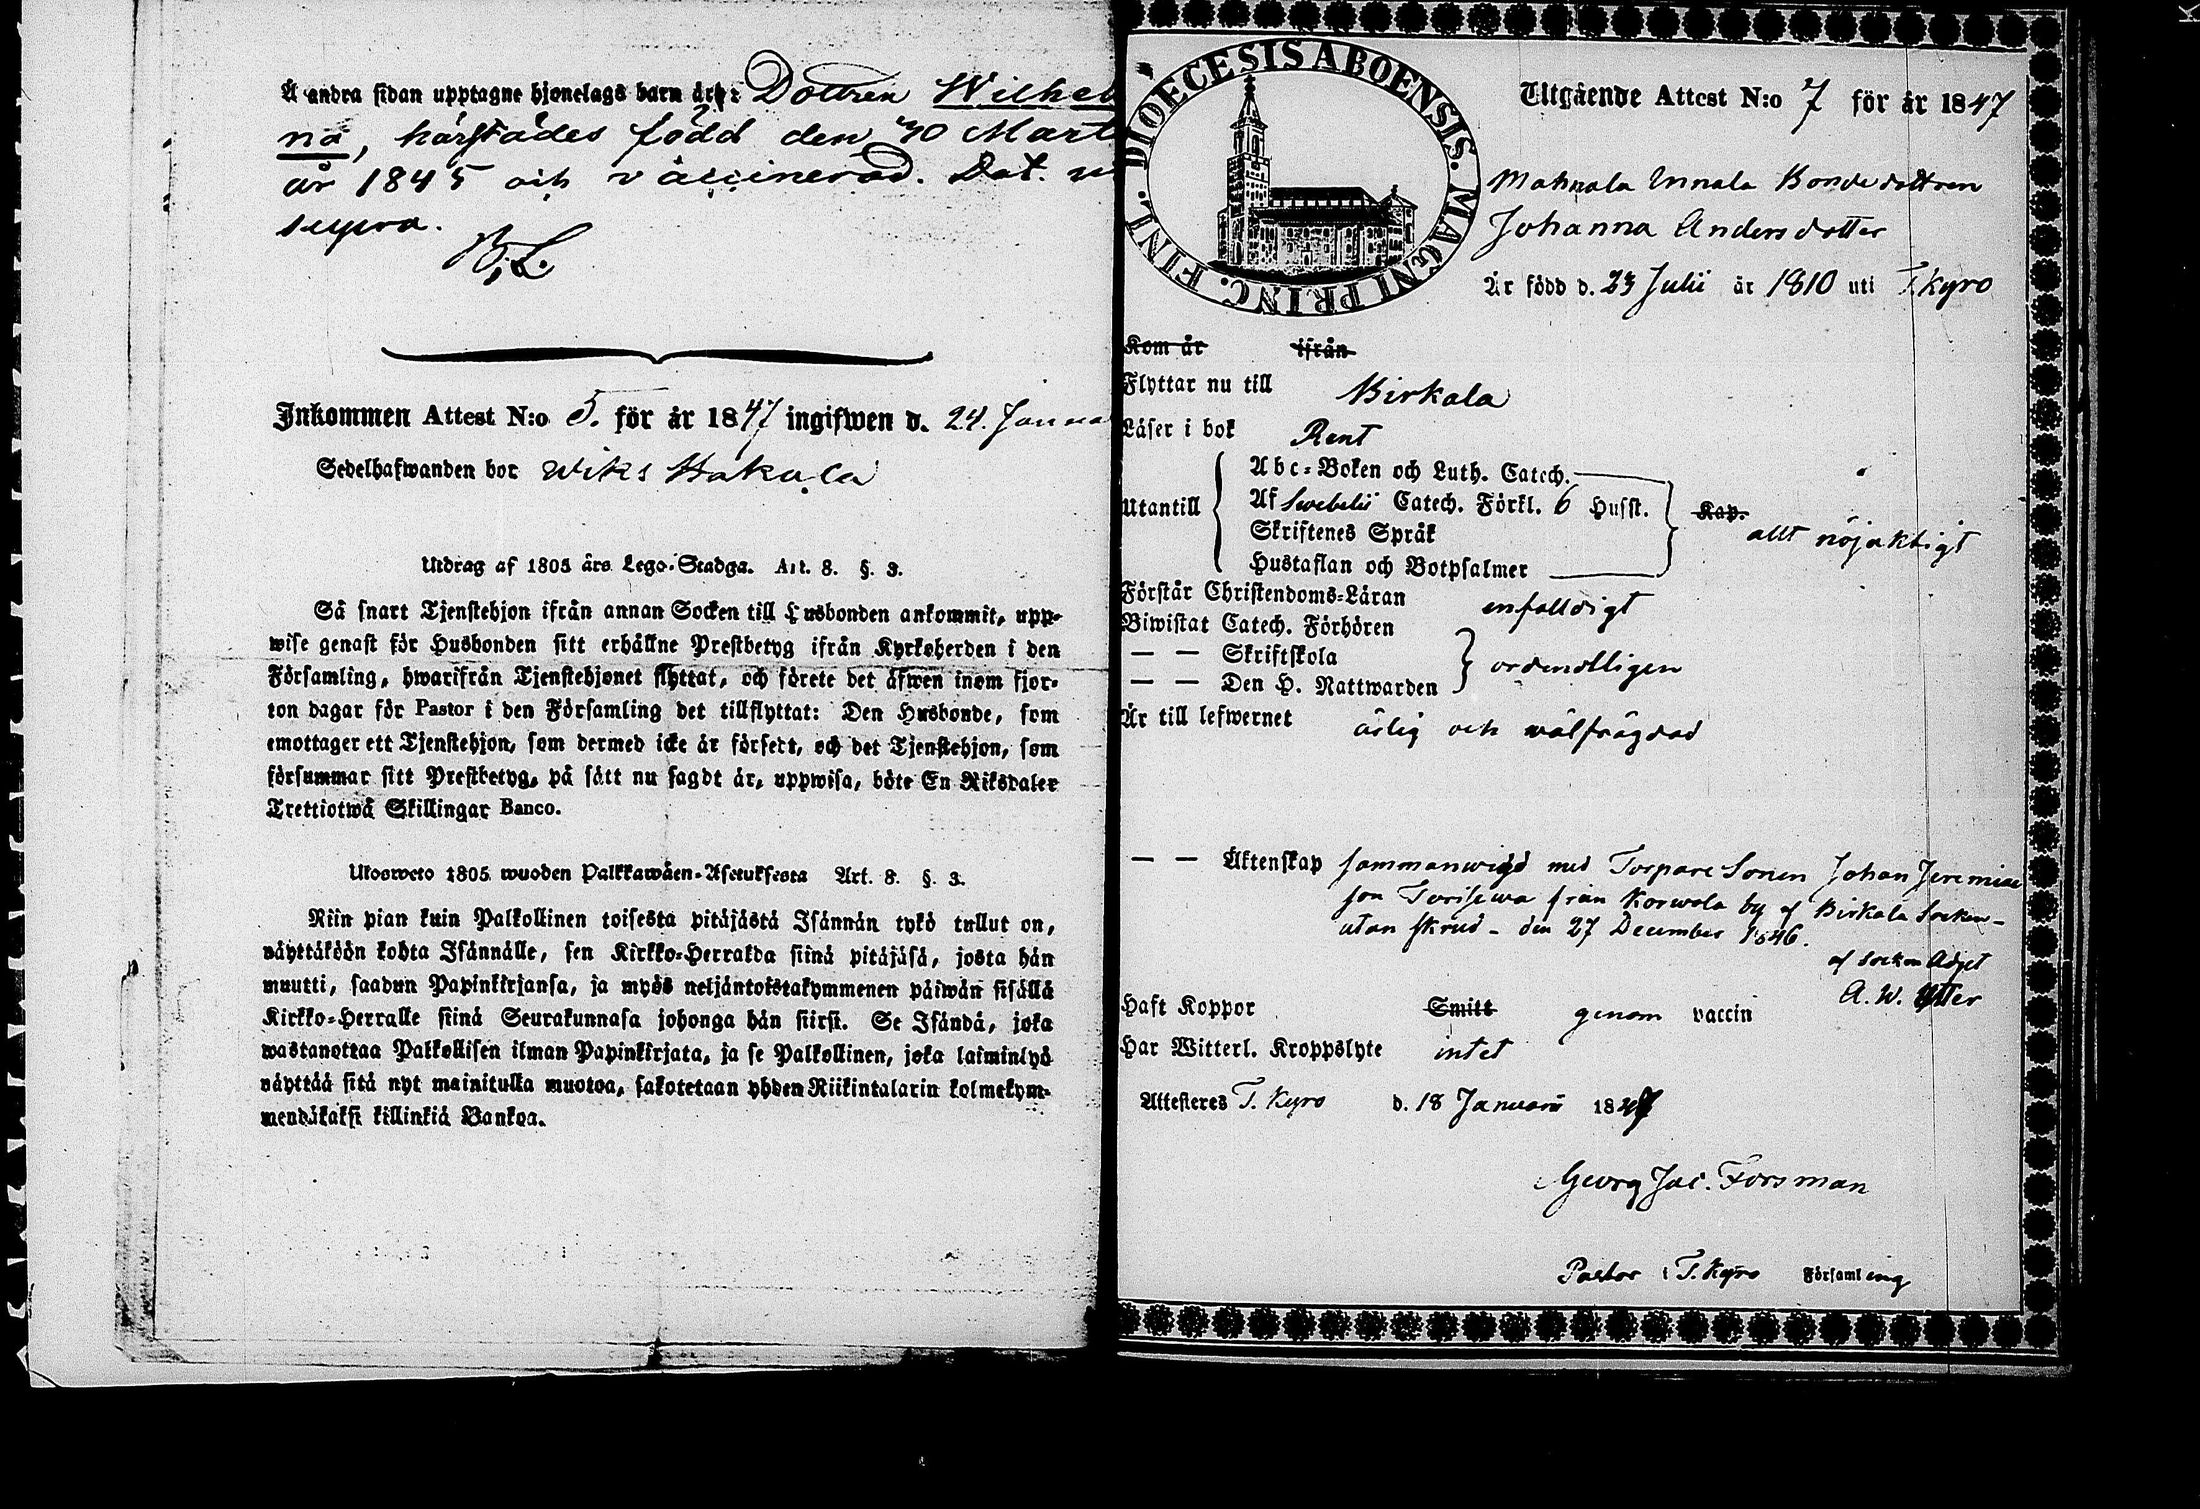 Å andra sidan upptagne hjonelags barn är: Dottren Wilhel
na, härstädes född den 30 Mart
år 1845 och vaccinerad. Dat. ut
supra.
B. L.
Inkommen Attest N:o 5. för år 1847 ingifwen d. 24. Janua
Sedelhafwanden bor Wiks Hakala
Utdrag af 1805 års Lego-Stadga. Art. 8. §. 3.
Så snart Tjenstehjon ifrån annan Socken till Husbonden ankommit, upp-
wise genast för Husbonden sitt erhållne Prestbetyg ifrån Kyrkoherden i den
Församling, hwarifrån Tjenstehjonet flyttat, och förete det äfwen inom fjor-
ton dagar för Pastor i den Församling det tillflyttat: Den Husbonde, som
emottager ett Tjenstehjon, som dermed icke är försedt, och det Tjenstehjon, som
försummar sitt Prestbetyg, på sätt nu sagdt är, uppwisa, böte En Riksdaler
Trettiotwå Skillingar Banco.
Ulosweto 1805 wuoden Palkkawäen-Asetuksesta Art. 8. §. 3.
Niin pian kuin Palkollinen toisesta pitäjästä Isännän tykö tullut on,
näyttäköön kohta Isännälle, sen Kirkko-Herralda siinä pitäjäsä, josta hän
muutti, saadun Papinkirjansa, ja myös neljäntoistakymmenen päiwän sisällä
Kirkko-Herralle siinä Seurakunnasa johonga hän siirsi. Se Isändä, joka
wastanottaa Palkollisen ilman Papinkirjata, ja se Palkollinen, joka laiminlyö
näyttää sitä nyt mainitulla muotoa, sakotetaan yhden Riikintalarin kolmekym-
mendäkaksi killinkiä Bankoa.
DIOECESIS ABOENSIS. MAGNI PRINC. FINL.
Utgående Attest N:o 7 för år 1847
Mahnala Innala Bondedottren
Johanna Andersdotter
Är född d. 23 Julii år 1810 uti T. Kyro
Kom år ifrån
Flyttar nu till Birkala
Läser i bok Rent
Abc-Boken och Luth. Catech.
Utantill Af Swebelii Catech. Förkl. 6 Husst. Kap. allt nöjaktigt
Skriftenes Språk
Hustaflan och Botpsalmer
Förstår Christendoms-Läran enfalldigt
Biwistat Catech. Förhören
— — Skriftskola ordendtligen
— — Den H. Nattwarden
Är till lefwernet ärlig och wälfrägdad
— — Äktenskap sammanwigd med Torpare Sonen Johan Jeremiae
son Torisewa från Korwola by af Birkala Socken –
utan skrud – den 27 December 1846.
af Socken Adjct
A. W.
Haft Koppor Smitt genom vaccin
Har Witterl. Kroppslyte intet
Attesteres T. Kyro d. 18 Januarii 1847
Georg Jac. Forsman
Pastor i T. Kyro Församling